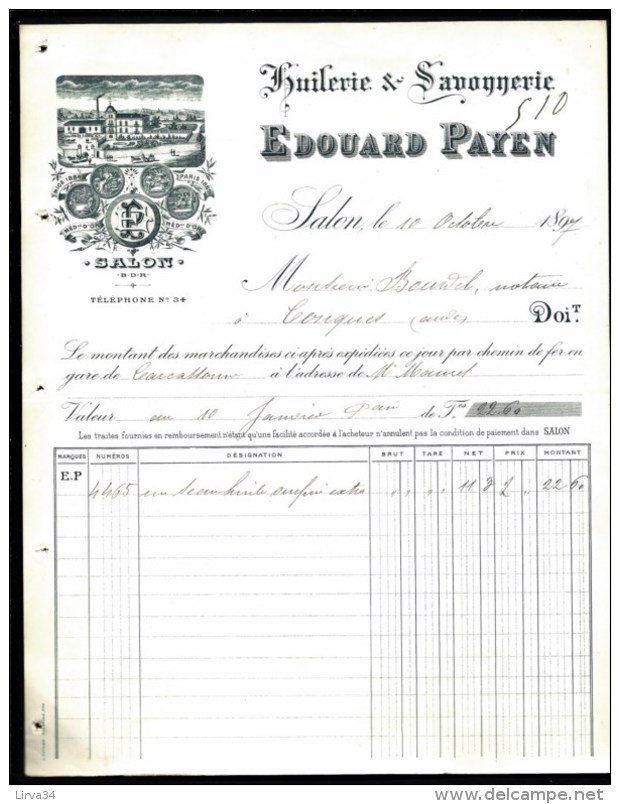 Huilerie & Savonnerie
510
EDOUARD PAYEN
MÉD.les D'OR
MÉD.les D'OR
EP
SALON
B-D-R
TÉLÉPHONE No 34
Salon, le 10 Octobre 1897
Monsieur Bourdel, notaire
à Conques (aude) Doi T.
Le montant des marchandises ci-après expédiées ce jour par chemin de fer en
gare de Carcassonne à l'adresse de Mr
Valeur au 10 Janvier de Fcs 22.60
Les traites fournies en remboursement n'étant qu'une facilité accordée à l'acheteur n'annulent pas la condition de paiement dans SALON
MARQUES NUMÉROS DÉSIGNATION BRUT TARE NET PRIX MONTANT
E.P 4465 un seau huile surfine extra " " " " 11 3 2 " 22 60
Lirva34
www.delcampe.net